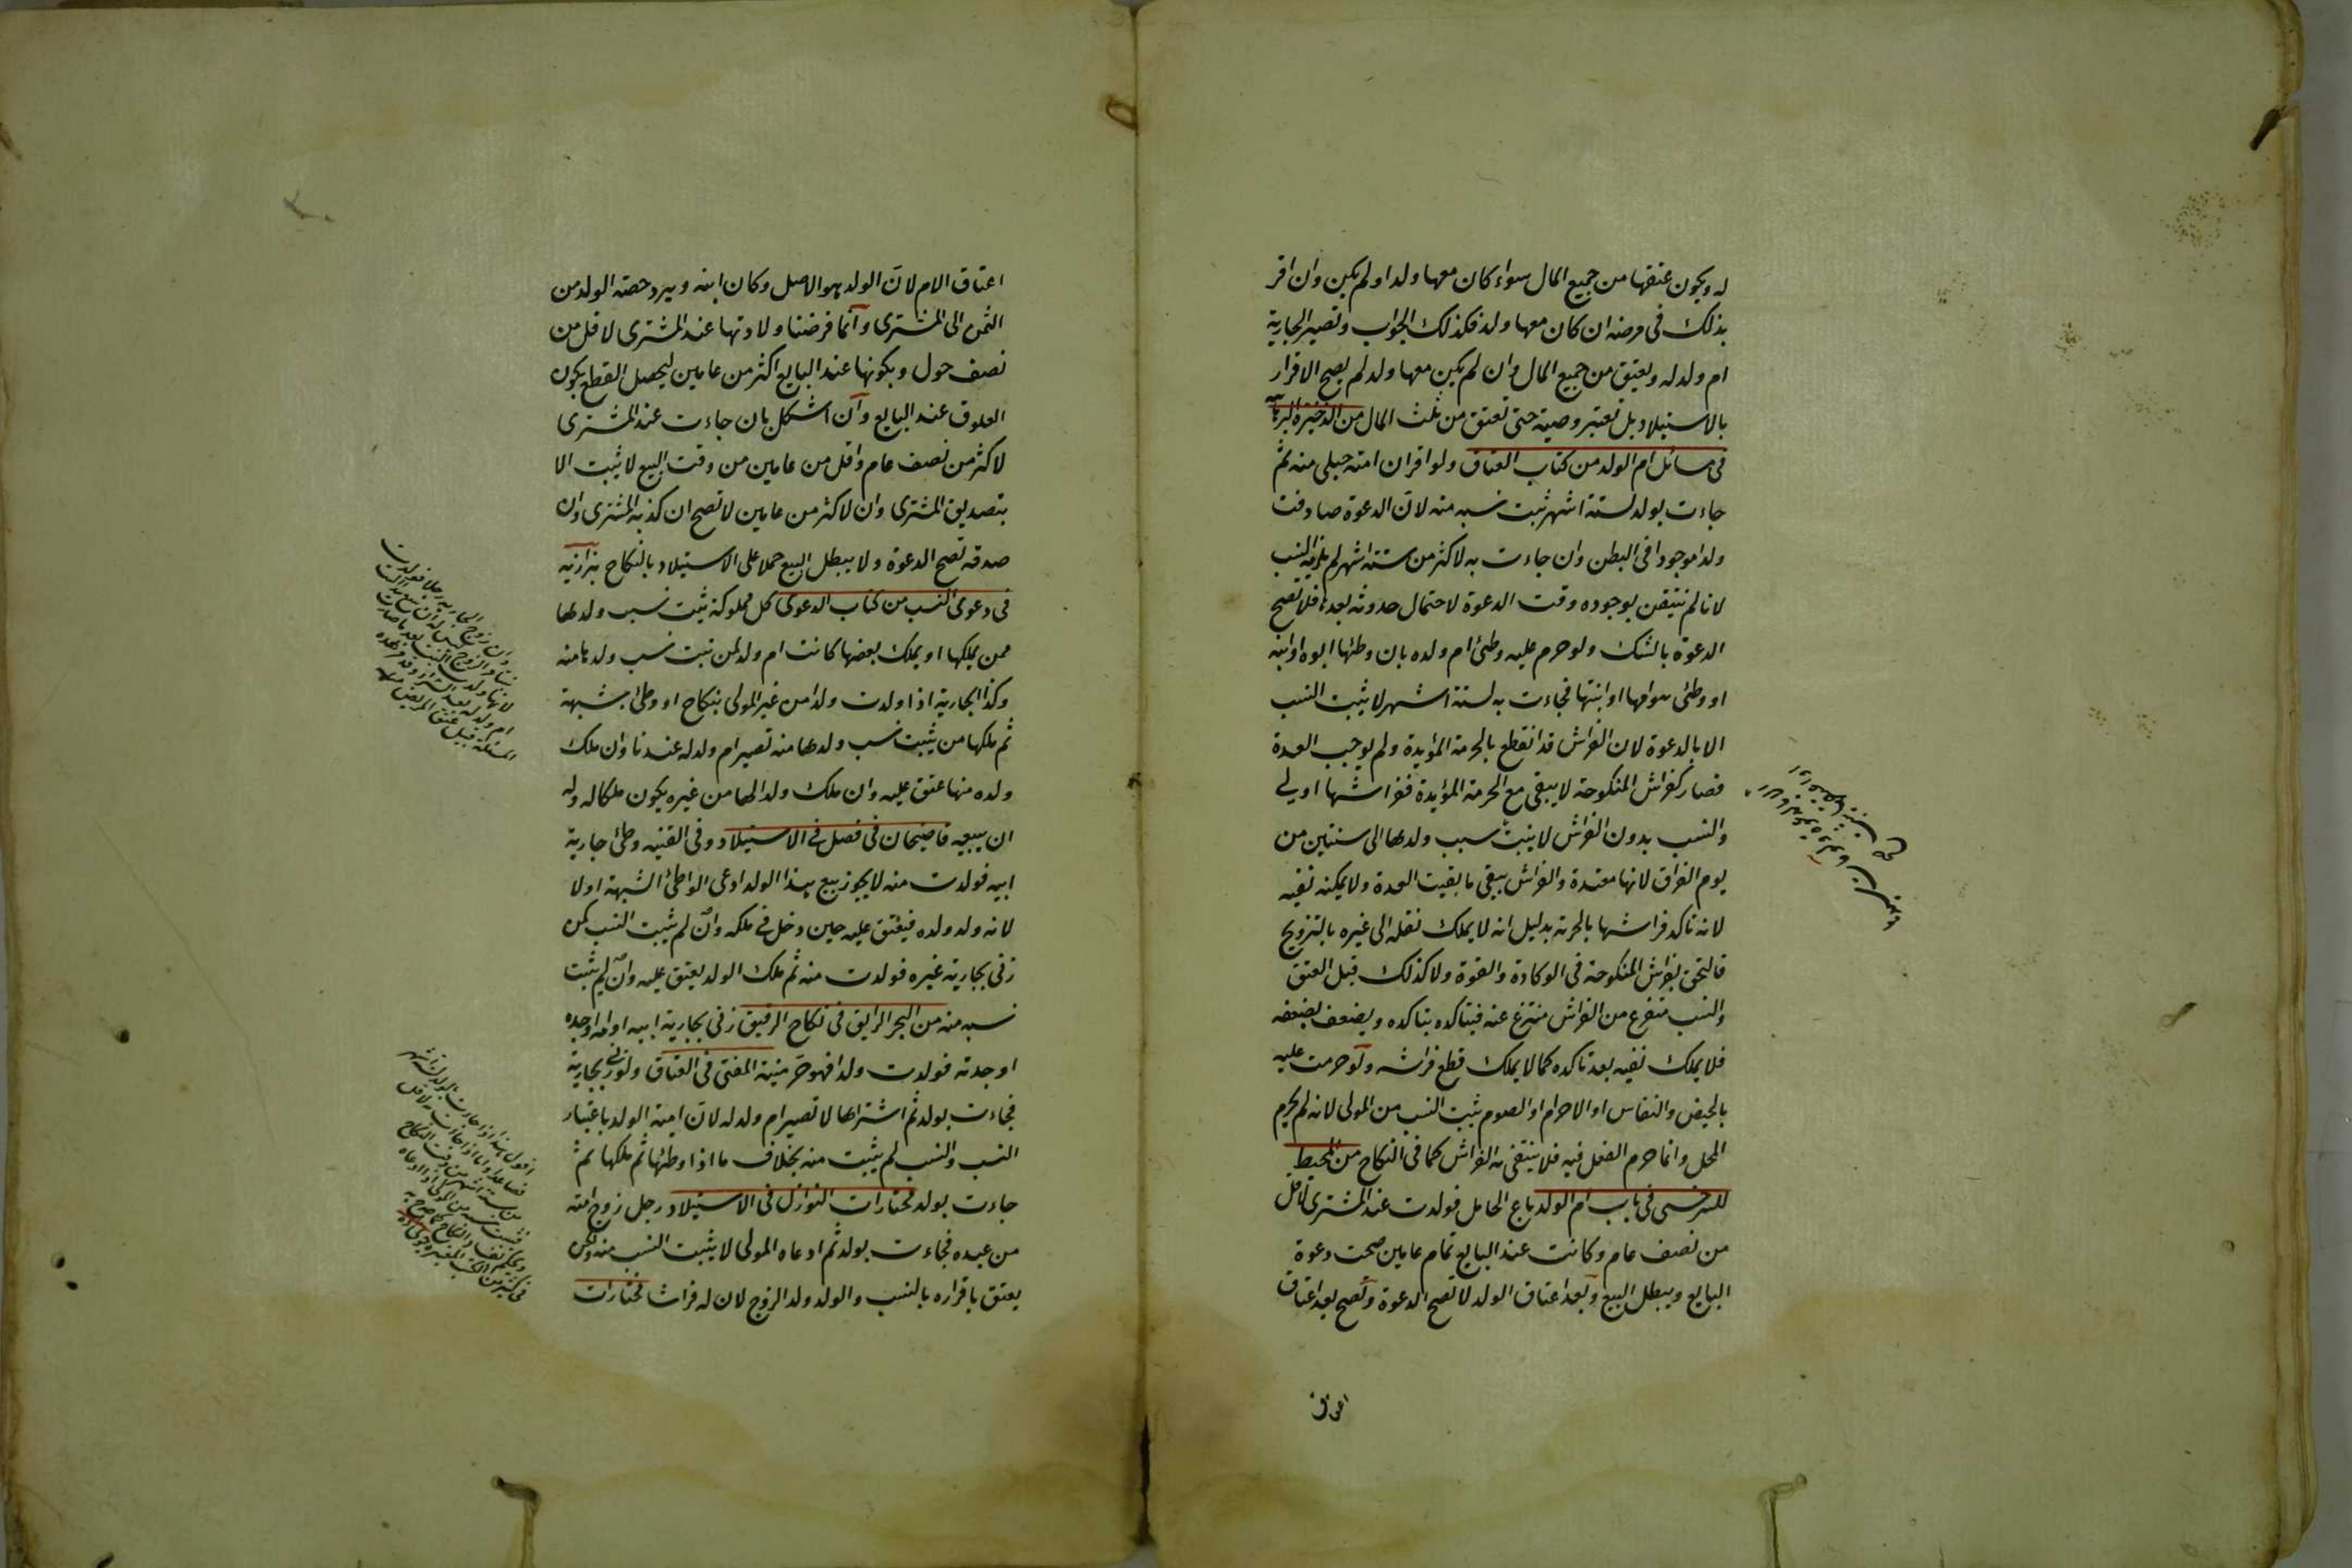 له ويكون عتقها من جميع المال سواء كان معها ولد او لم يكن وان اقر
بذلك في مرضه ان كان معها ولد فكذلك الجواب وتصير الجارية
ام ولد له وتعتق من جميع المال وان لم يكن معها ولد لم يصح الاقرار
بالاستيلاد بل تعتبر وصية حتى تعتق من ثلث المال من الذخيرة البرهانية
في مسائل ام الولد من كتاب العتاق ولو اقر ان امته حبلى منه ثم
جاءت بولد لستة اشهر ثبت نسبه منه لان الدعوة صادفت
ولدا موجودا في البطن وان جاءت به لاكثر من ستة اشهر لم يلزمه النسب
لانا لم نتيقن بوجوده وقت الدعوة لاحتمال حدوثه بعدها فلا تصح
الدعوة بالشك ولو حرم عليه وطئ ام ولده بان وطئها ابوه او ابنه
او وطئ هو امها او ابنتها فجاءت به لستة اشهر لا يثبت النسب
الا بالدعوة لان الفراش قد انقطع بالحرمة المؤبدة ولم يوجب العدة
فصار كفراش المنكوحة لا يبقى مع الحرمة المؤبدة ففراشها اولى
والنسب بدون الفراش لا يثبت نسب ولدها الى سنتين من
يوم الفراق لانها معتدة والفراش يبقى ما بقيت العدة ولا يمكنه نفيه
لانه تاكد فراشها بالحرية بدليل انه لا يملك نقله الى غيره بالتزويج
فالتحق بفراش المنكوحة في الوكادة والقوة ولا كذلك قبل العتق
والنسب متفرع من الفراش منتزع عنه فيتاكد بتاكده ويضعف بضعفه
فلا يملك نفيه بعد تاكده كما لا يملك قطع فراشه ولو حرمت عليه
بالحيض والنفاس او الاحرام او الصوم يثبت النسب من المولى لانه لم يحرم
المحل وانما حرم الفعل فيه فلا ينتفي به الفراش كما في النكاح من المحيط
للسرخسي في باب ام الولد باع الحامل فولدت عند المشتري لاقل
من نصف عام وكانت عند البايع تمام عامين صحت دعوة
البايع ويبطل البيع وبعد اعتاق الولد لا تصح الدعوة وتصح بعد اعتاق
اعتاق الام لان الولد هو الاصل وكان ابنه ويرد حصة الولد من
الثمن الى المشتري وانما فرضنا ولادتها عند المشتري لاقل من
نصف حول وبكونها عند البايع اكثر من عامين ليحصل القطع بكون
العلوق عند البايع وان اشكل بان جاءت عند المشتري
لاكثر من نصف عام واقل من عامين من وقت البيع لا يثبت الا
بتصديق المشتري وان لاكثر من عامين لا تصح ان كذبه المشتري وان
صدقه تصح الدعوة ولا يبطل البيع حملا على الاستيلاد بالنكاح بزازيه
في دعوى النسب من كتاب الدعوى كل مملوكة ثبت نسب ولدها
ممن يملكها او يملك بعضها كانت ام ولد لمن ثبت نسب ولدها منه
وكذا الجارية اذا ولدت ولدا من غير المولى بنكاح او وطئ بشبهة
ثم ملكها من يثبت نسب ولدها منه تصير ام ولد له عندنا وان ملك
ولده منها عتق عليه وان ملك ولدا لها من غيره يكون ملكا له وله
ان يبيعه قاضيخان في فصل في الاستيلاد وفي القنيه وطئ جارية
ابيه فولدت منه لا يجوز بيع هذا الولد ادعى الواطئ الشبهة او لا
لانه ولد ولده فيعتق عليه حين دخل في ملكه وان لم يثبت النسب كمن
زنى بجارية غيره فولدت منه ثم ملك الولد يعتق عليه وان لم يثبت
نسبه منه من البحر الرايق في نكاح الرقيق زنى بجارية ابيه او امه او جده
او جدته فولدت ولدا فهو حر منية المفتي في العتاق ولو زنى بجارية
فجاءت بولد ثم اشتراها لا تصير ام ولد له لان امية الولد باعتبار
النسب والنسب لم يثبت منه بخلاف ما اذا وطئها ثم ملكها ثم
جاءت بولد مختارات النوازل في الاستيلاد رجل زوج امته
من عبده فجاءت بولد ثم ادعاه المولى لا يثبت النسب منه ولكن
يعتق باقراره بالنسب والولد ولد الزوج لان له فراشا مختارات